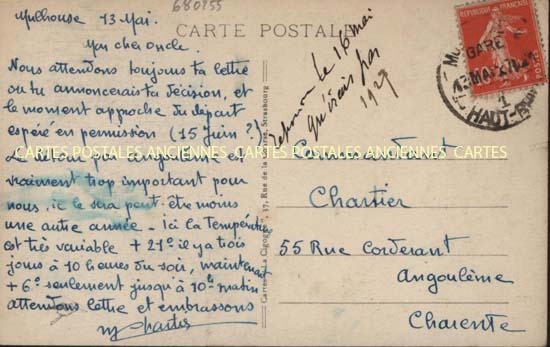 680255
CARTE POSTALE
Mulhouse 13 Mai.
Mon cher oncle.
Nous attendons toujours ta lettre
ou tu annoncerais ta décision, et
le moment approche du départ
espéré en permission (15 Juin ?)
Le détour par Angoulême est
vraiment trop important pour
nous, il le sera peut-être moins
une autre année - Ici la Température
est très variable + 21° il y a trois
jours à 10 heures du soir, maintenant
+ 6° seulement jusqu'à 10h matin
attendons lettre et embrassons
Chartier
le 16 mai
1927
Cartes "La Cigogne", 37, Rue de la Strasbourg
REPUBLIQUE FRANÇAISE
POSTES
GARE
HAUT-RHIN
Commandant
Chartier
55 Rue Corderant
Angoulême
Charente
CARTES POSTALES ANCIENNES CARTES POSTALES ANCIENNES CARTES